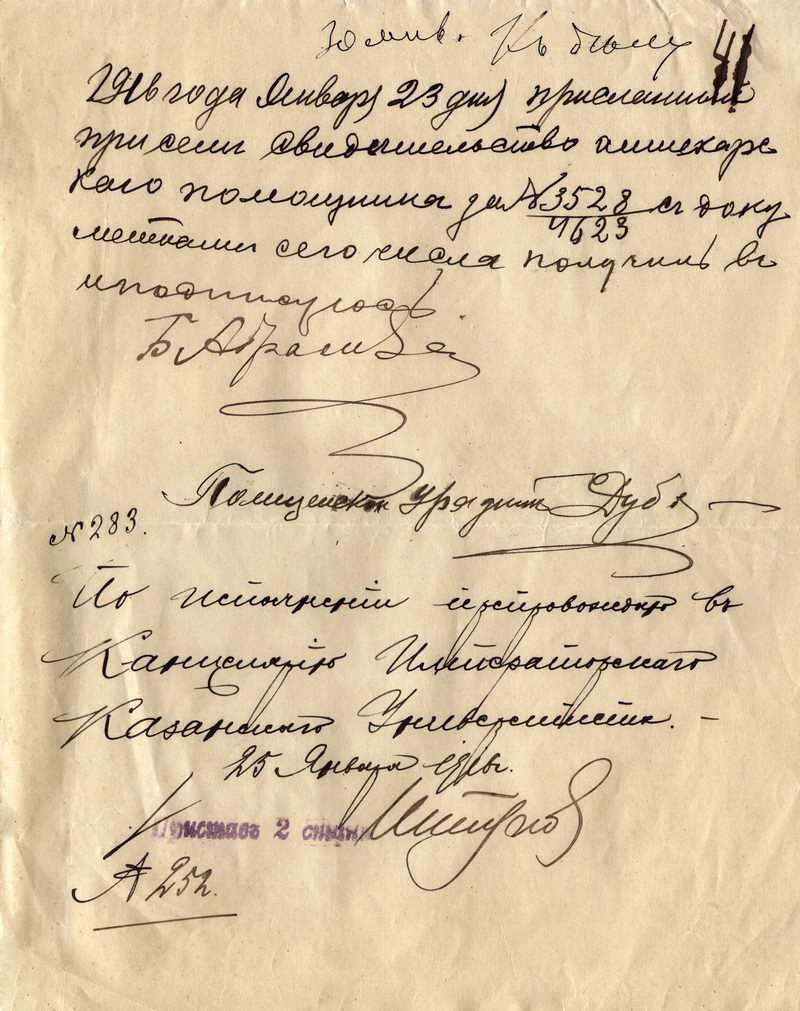 Къ делу 41
1916 года Января 23 дня присланный
при семъ свидетельство аптекарс
каго помощника за № 3528 съ доку
4623
ментами сего числа получилъ въ
чем подписуюсь
Б. Абрамов
Полицейскій Урядникъ Дуб
№ 283.
По исполненіи препровождаю въ
Канцелярію Императорскаго
Казанскаго Университета. –
25 Января 1916г.
Приставъ 2 стана
№ 252.